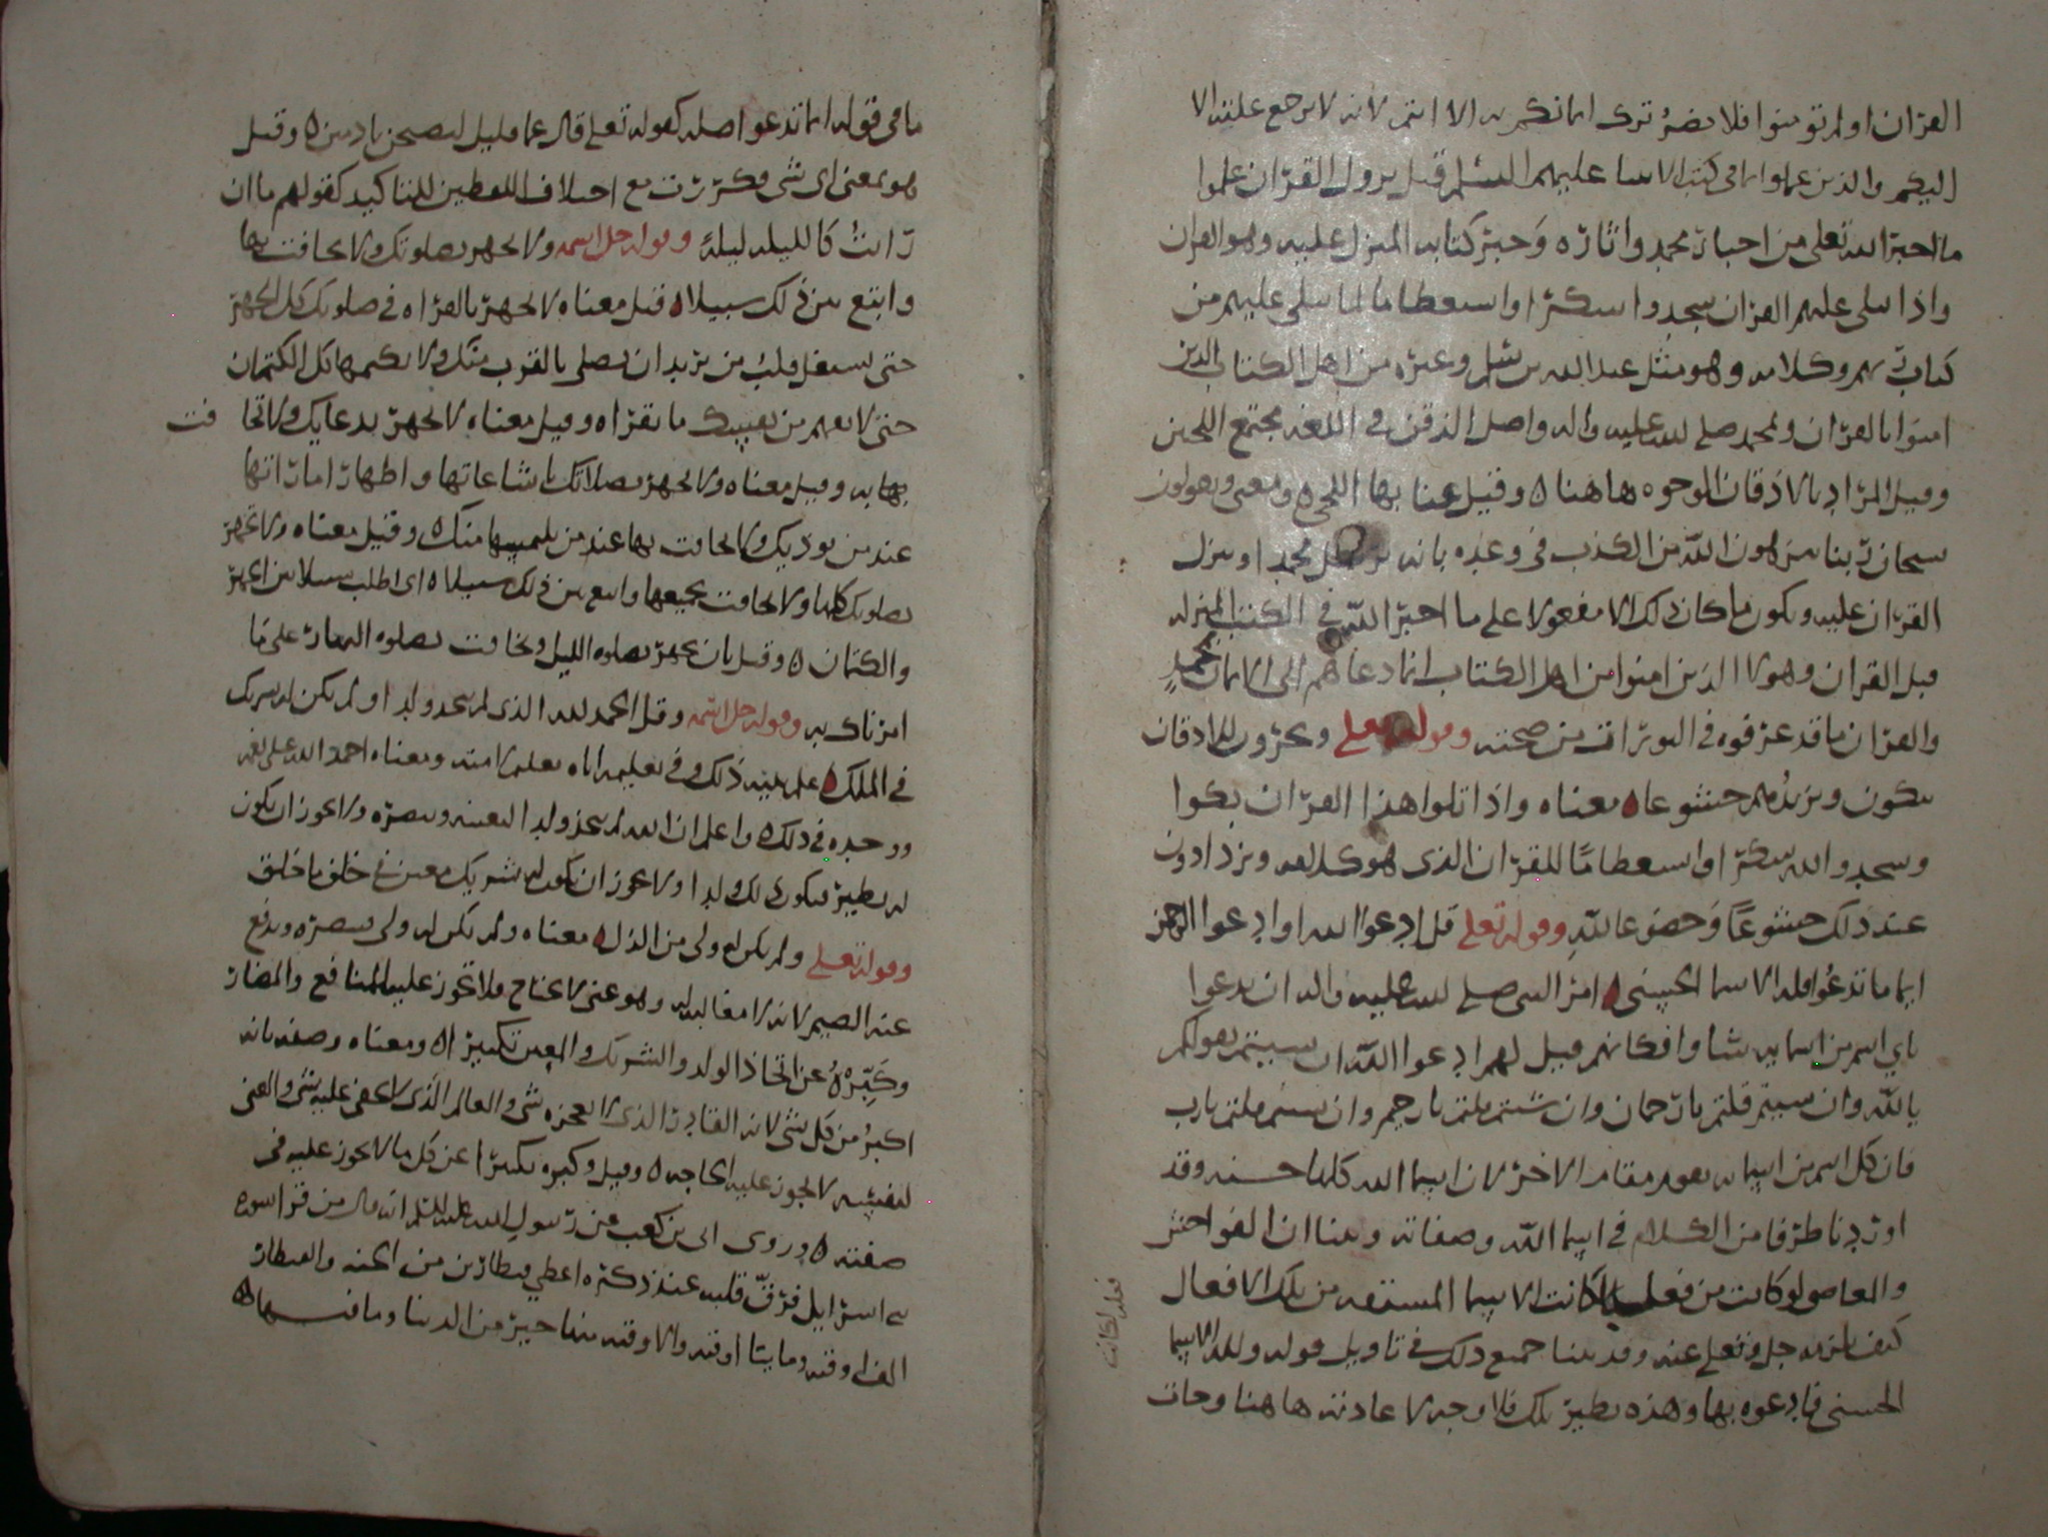 القرآن او لم تومنوا فلا يضر ترك ايمانكم به الا انتم لانه لا يرجع علته الا
اليكم والذين علموا ما في كتب الانبيا عليهم السلم قبل نزول القرآن علموا
ما اخبر الله تعلى من اخبار محمد واثاره وخبر كتابه المنزل عليه وهو القران
واذا تتلى عليهم القران سجدوا شكرا واستعظاما لما يتلى عليهم من
كتاب ربهم وكلامه وهو مثل عبد الله بن سلم وغيره من اهل الكتاب الذين
امنوا بالقرآن وبمحمد صلى الله عليه واله واصل الذقن في اللغه مجتمع اللحيين
وقيل المراد بالاذقان الوجوه هاهنا ٥ وقيل عنا بها اللحى ٥ ومعنى ويقولون
سبحان ربنا ينزهون الله من الكذب في وعده بانه يرسل محمدا وينزل
القرآن عليه ويكون ما كان ذلك الا مفعولا على ما اخبر الله في الكتب المنزله
قبل القران وهولا الذين امنوا من اهل الكتاب انما دعاهم الى الايمان بمحمد
والقرآن ما قد عرفوه في التوراة من صحته وقوله تعلى ويخرون للاذقان
يبكون ويزيدهم خشوعا ٥ معناه واذا تلوا هذا القرآن بكوا
وسجدوا لله شكرا واستعظاما للقرآن الذي هو كلامه ويزدادون
عند ذلك خشوعا وخضوعا لله وقوله تعلى قل ادعوا الله او ادعوا الرحمن
ايما ما تدعوا فله الاسما الحسنى ٥ امر النبي صلى الله عليه واله ان يدعوا
باي اسم من اسمايه شاوا فكانهم قيل لهم ادعوا الله ان سيتم بقولكم
يا لله وان سيتم قلتم يا رحمان وان شئتم قلتم يا رحيم وان سيتم قلتم يا رب
فان كل اسم من اسمايه يقوم مقام الاخر لان اسما الله كلها حسنه وقد
اوردنا طرفا من الكلام في اسما الله وصفاته وبينا ان الفواحش
والمعاصي لو كانت من فعله لكانت الاسما المشتقه من تلك الافعال
فعله لكانت
جل وتعلى عنه وقد بينا جميع ذلك في تاويل قوله ولله الاسما
الحسنى فادعوه بها وهذه نظيره تلك فلا وجه لاعادته هاهنا وجات
ما في قوله ايما تدعوا صله كقوله تعلى قال عما قليل ليصبحن نادمين ٥ وقيل
هو بمعنى اي شي وكررت مع اختلاف اللفظين للتاكيد كقولهم ما ان
رايت كالليله ليلة وقوله جل اسمه ولا تجهر بصلوتك ولا تخافت بها
وابتغ بين ذلك سبيلا ٥ قيل معناه لا تجهر بالقراه في صلوتك كل الجهر
حتى يشتغل قلب من يريد ان يصلي بالقرب منك ولا تكتمها كل الكتمان
حتى لا تفهم من نفسك ما تقراه وقيل معناه لا تجهر بدعايك ولا تخا فت
بها به وقيل معناه ولا تجهر بصلاتك باشاعتها واظهار اماراتها
عند من يوذيك ولا تخافت بها عند من يلتمسها منك ٥ وقيل معناه ولا تجهر
بصلوتك كلها ولا تخافت بجميعها وابتغ بين ذلك سبيلا ٥ اي اطلب سبيلا بين الجهر
والكتمان ٥ وقيل بان تجهر بصلوه الليل وتخافت بصلوه النهار على ما
امرناك به وقوله جل اسمه وقل الحمد لله الذي لم يتخذ ولدا ولم يكن له شريك
في الملك ٥ علم نبيه ذلك وفي تعليمه اياه تعليم لامته ومعناه احمد الله على نعمه
ووحده في ذلك واعلم ان الله لم يتخذ ولدا ليعينه وينصره ولا يجوز ان يكون
له نظير فيكون ذلك ولدا ولا يجوز ان يكون له شريك معين في خلق ما خلق
وقوله تعلى ولم يكن له ولي من الذل ٥ معناه ولم يكن له ولي ينصره ويدفع
عنه الضيم لانه لا مغالب له وهو غني لا يحتاج فلا تجوز عليه المنافع والمضار
وكبره عن اتخاذ الولد والشريك والمعين تكبيرا ٥ ومعناه وصفه بانه
اكبر من كل شي لانه القادر الذي لا يعجزه شي والعالم الذي لا يخفى عليه شي والغني
لنفسه لا تجوز عليه الحاجه ٥ وقيل وكبره تكبيرا عن كل ما لا يجوز عليه في
صفته ٥ وروى ابي بن كعب عن رسول الله عليه السلم انه قال من قرا سوره
بني اسرايل فرق قلبه عند ذكره اعطي قنطارين من الجنه والقنطار
الف اوقيه ومايتا اوقيه والاوقيه منها خير من الدنيا وما فيها ٥